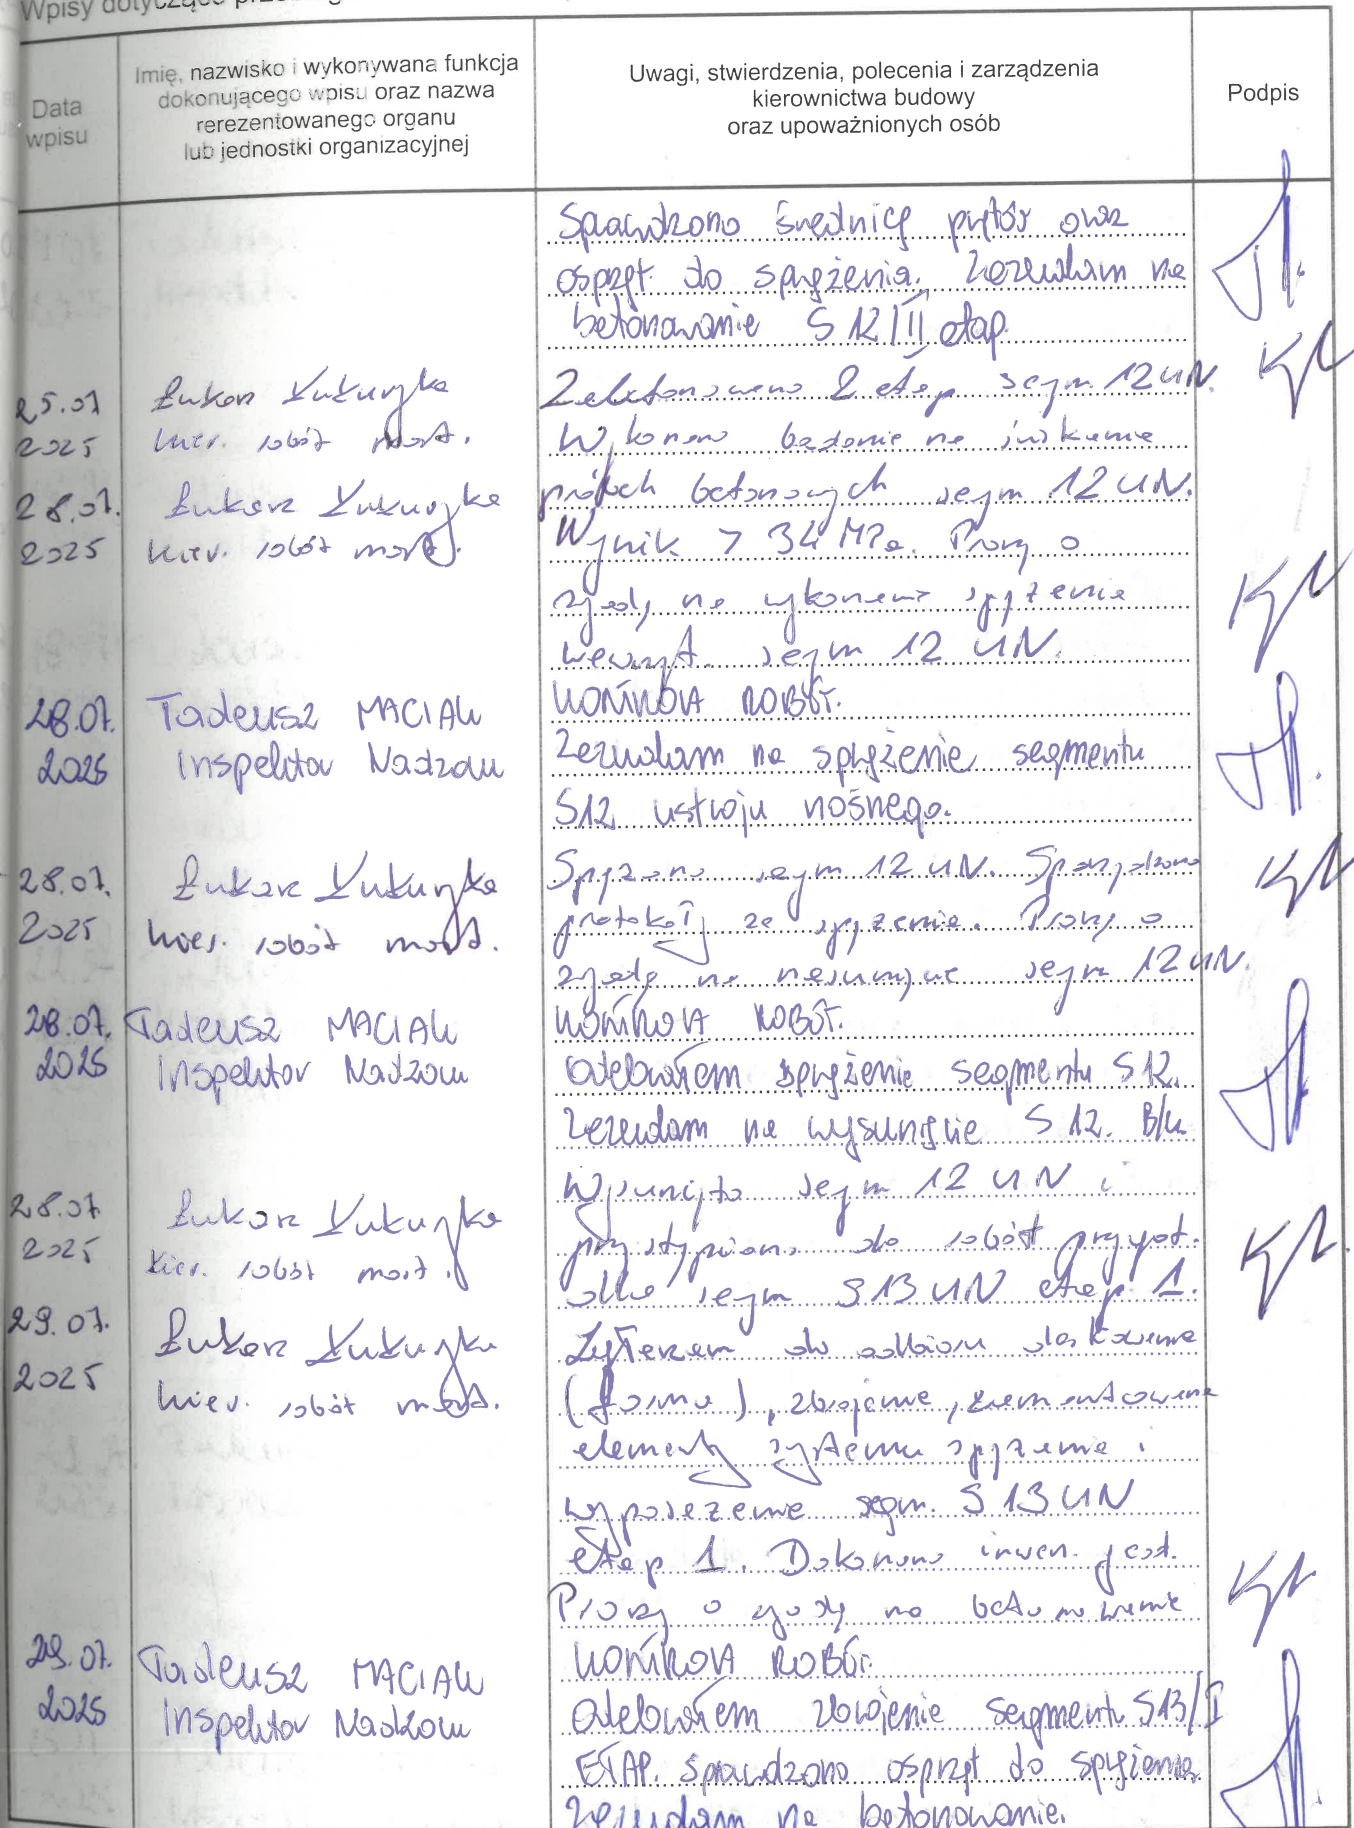 Wpisy dotyczące
Data
wpisu
Imię, nazwisko i wykonywana funkcja
dokonującego wpisu oraz nazwa
rerezentowanego organu
lub jednostki organizacyjnej
Uwagi, stwierdzenia, polecenia i zarządzenia
kierownictwa budowy
oraz upoważnionych osób
Podpis
Sprawdzono średnicę prętów oraz
osprzęt do sprężenia. Zezwalam na
betonowanie S12/II etap.
25.07
2025
Łukasz Kukuryka
kier. robót most.
Zabetonowano 2 etap segm 12 UN.
28.07.
2025
Łukasz Kukuryka
kier. robót most.
Wykonano badanie na ściskanie
próbek betonowych segm 12 UN.
Wynik > 34 MPa. Proszę o
zgodę na wykonanie sprężenia
wewnęt. segm 12 UN.
28.07.
2025
Tadeusz MACIAK
Inspektor Nadzoru
KONTROLA ROBÓT.
Zezwalam na sprężenie segmentu
S12 ustroju nośnego.
28.07.
2025
Łukasz Kukuryka
kier. robót most.
Sprężono segm 12 UN. Sporządzono
protokoły ze sprężenia. Proszę o
zgodę na nasunięcie segm 12 UN.
28.07.
2025
Tadeusz MACIAK
Inspektor Nadzoru
KONTROLA ROBÓT.
Odebrałem sprężenie segmentu S12.
Zezwalam na wysunięcie S12. B/u
28.07
2025
Łukasz Kukuryka
kier. robót most.
Wysunięto segm 12 UN i
przystąpiono do robót przygot.
dla segm S13 UN etap 1.
29.07.
2025
Łukasz Kukuryka
kier. robót most.
Zgłaszam do odbioru deskowanie
(forma), zbrojenie, zamontowane
elementy systemu sprężenia i
wyposażenie segm. S13 UN
etap 1. Dokonano inwen. geod.
Proszę o zgodę na betonowanie
29.07.
2025
Tadeusz MACIAK
Inspektor Nadzoru
KONTROLA ROBÓT.
Odebrałem zbrojenie segmentu S13/I
ETAP. Sprawdzono osprzęt do sprężenia
Zezwalam na betonowanie.